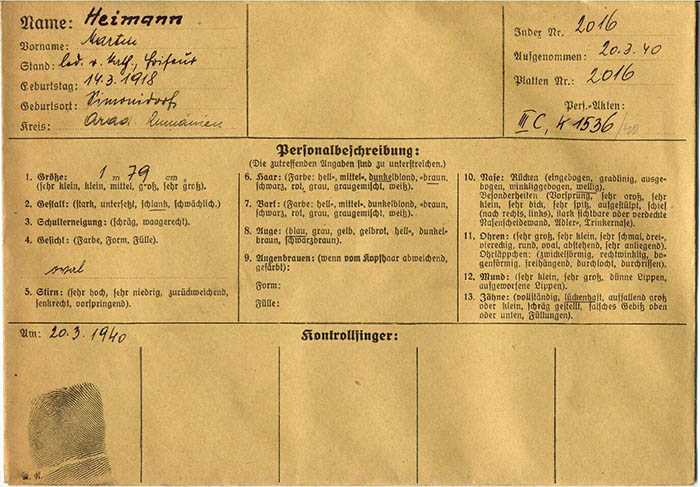 Name: Heimann
Vorname: Martin
Stand: led. r. kth., Friseur
Geburtstag: 14.3.1918
Geburtsort: Simonidorf
Kreis: Arad. Rumänien
Index Nr. 2016
Aufgenommen: 20.3.40
Platten Nr.: 2016
Pers.-Akten:
III C, K 1536/40
Personalbeschreibung:
(Die zutreffenden Angaben sind zu unterstreichen.)
1. Größe: 1 m 79 cm
(sehr klein, klein, mittel, groß, sehr groß).
2. Gestalt: (stark, untersetzt, schlank, schwächlich.)
3. Schulterneigung: (schräg, waagerecht).
4. Gesicht: (Farbe, Form, Fülle).
oval
5. Stirn: (sehr hoch, sehr niedrig, zurückweichend,
senkrecht, vorspringend).
6. Haar: (Farbe: hell-, mittel-, dunkelblond, -braun,
schwarz, rot, grau, graugemischt, weiß).
7. Bart: (Farbe: hell-, mittel-, dunkelblond, -braun,
schwarz, rot, grau, graugemischt, weiß).
8. Auge: (blau, grau, gelb, gelbrot, hell-, dunkel-
braun, schwarzbraun).
9. Augenbrauen: (wenn vom Kopfhaar abweichend,
gefärbt):
Form:
Fülle:
10. Nase: Rücken (eingebogen, gradlinig, ausge-
bogen, winkliggebogen, wellig).
Besonderheiten (Vorsprung, sehr groß, sehr
klein, sehr dick, sehr spitz, aufgestülpt, schief
(nach rechts, links), stark sichtbare oder verdeckte
Nasenscheidewand, Adler-, Trinkernase).
11. Ohren: (sehr groß, sehr klein, sehr schmal, drei-,
viereckig, rund, oval, abstehend, sehr anliegend).
Ohrläppchen: (zwickelförmig, rechtwinklig, bo-
genförmig, freihängend, durchlocht, durchrissen).
12. Mund: (sehr klein, sehr groß, dünne Lippen,
aufgeworfene Lippen).
13. Zähne: (vollständig, lückenhaft, auffallend groß
oder klein, schräg gestellt, falsches Gebiß oben
oder unten, Füllungen).
Am: 20.3.1940
Kontrollfinger: